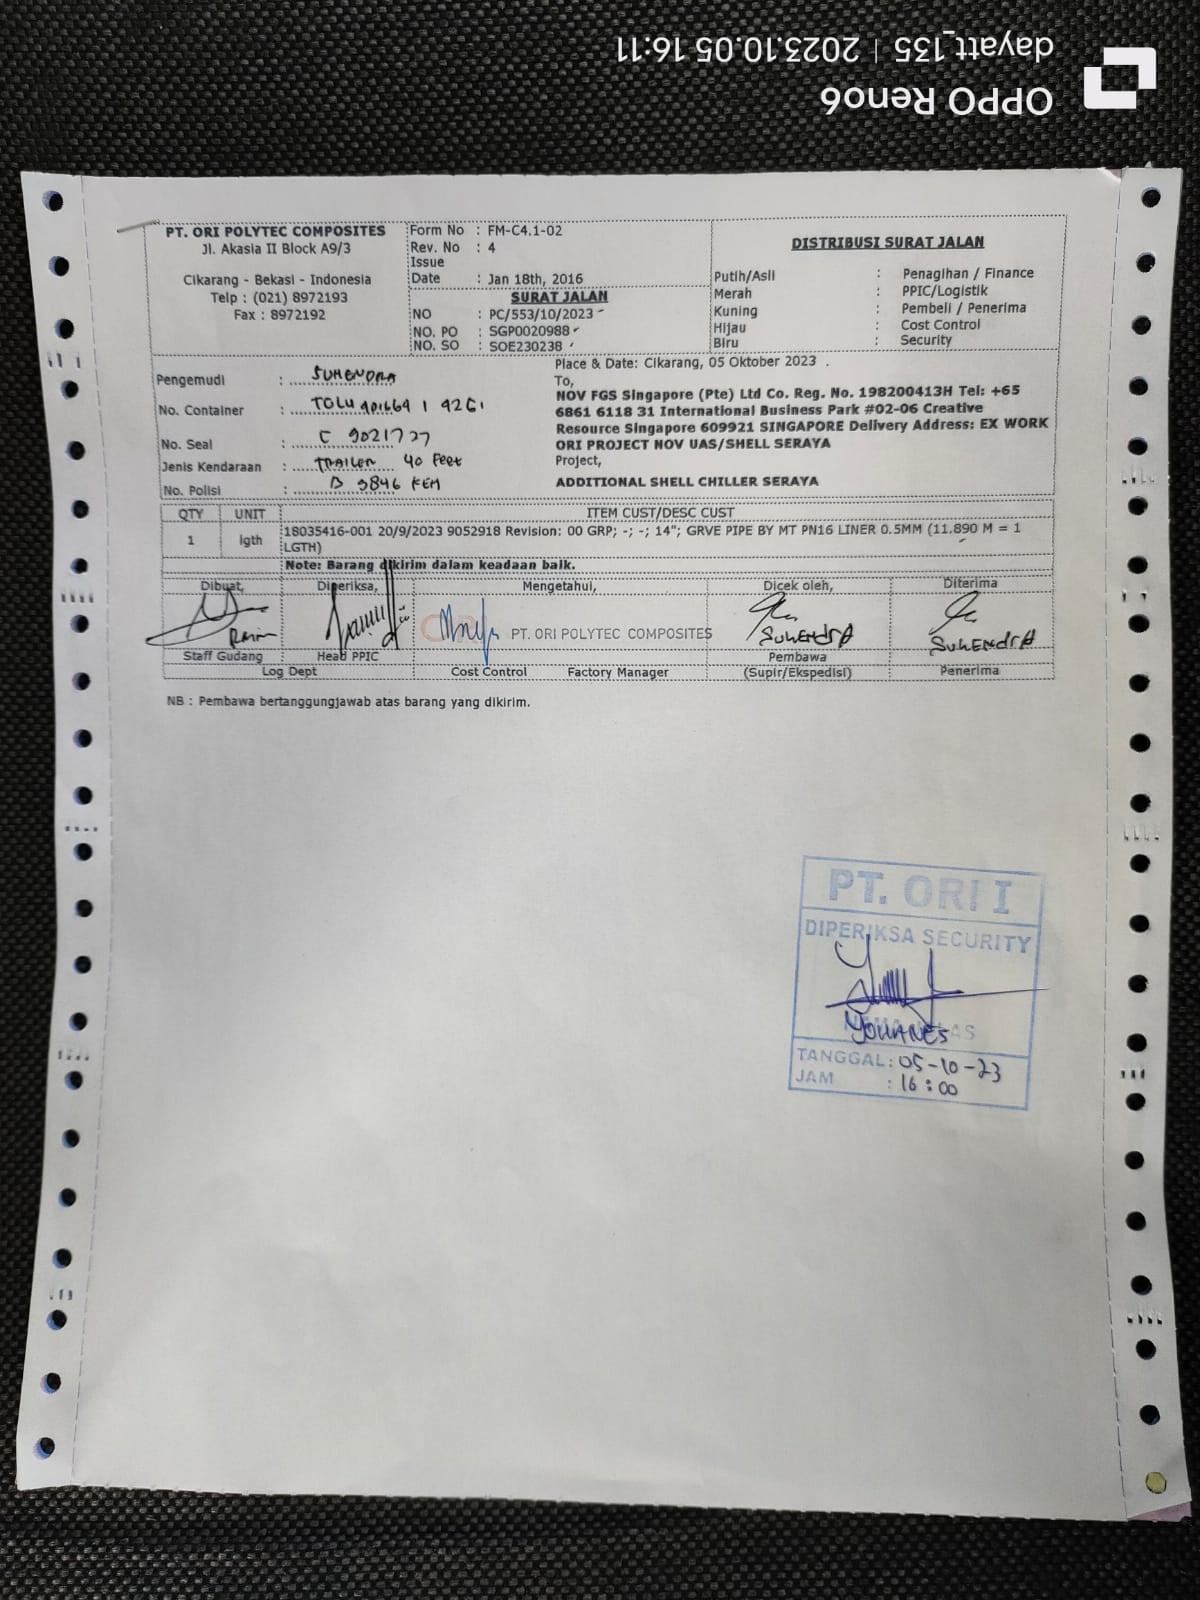 dayatt_135 | 2023.10.05 16:11
OPPO Reno6
PT. ORI POLYTEC COMPOSITES
Jl. Akasia II Block A9/3
Cikarang - Bekasi - Indonesia
Telp : (021) 8972193
Fax : 8972192
Form No : FM-C4.1-02
Rev. No : 4
Issue
Date : Jan 18th, 2016
SURAT JALAN
NO : PC/553/10/2023
NO. PO : SGP0020988
NO. SO : SOE230238
DISTRIBUSI SURAT JALAN
Putih/Asli : Penagihan / Finance
Merah : PPIC/Logistik
Kuning : Pembeli / Penerima
Hijau : Cost Control
Biru : Security
Pengemudi : SUHENDRA
No. Container : TOLU 901669 1 42G1
No. Seal : C 9021727
Jenis Kendaraan : TRAILER 40 Feet
No. Polisi : B 9846 KEH
Place & Date: Cikarang, 05 Oktober 2023 .
To,
NOV FGS Singapore (Pte) Ltd Co. Reg. No. 198200413H Tel: +65
6861 6118 31 International Business Park #02-06 Creative
Resource Singapore 609921 SINGAPORE Delivery Address: EX WORK
ORI PROJECT NOV UAS/SHELL SERAYA
Project,
ADDITIONAL SHELL CHILLER SERAYA
QTY UNIT ITEM CUST/DESC CUST
1 lgth 18035416-001 20/9/2023 9052918 Revision: 00 GRP; -; -; 14"; GRVE PIPE BY MT PN16 LINER 0.5MM (11.890 M = 1
LGTH)
Note: Barang dikirim dalam keadaan baik.
Dibuat, Diperiksa, Mengetahui, Dicek oleh, Diterima
PT. ORI POLYTEC COMPOSITES
SUHENDRA SUHENDRA
Staff Gudang Head PPIC Pembawa
Log Dept Cost Control Factory Manager (Supir/Ekspedisi) Penerima
NB : Pembawa bertanggungjawab atas barang yang dikirim.
PT. ORI I
DIPERIKSA SECURITY
YOHANES
TANGGAL: 05-10-23
JAM : 16:00